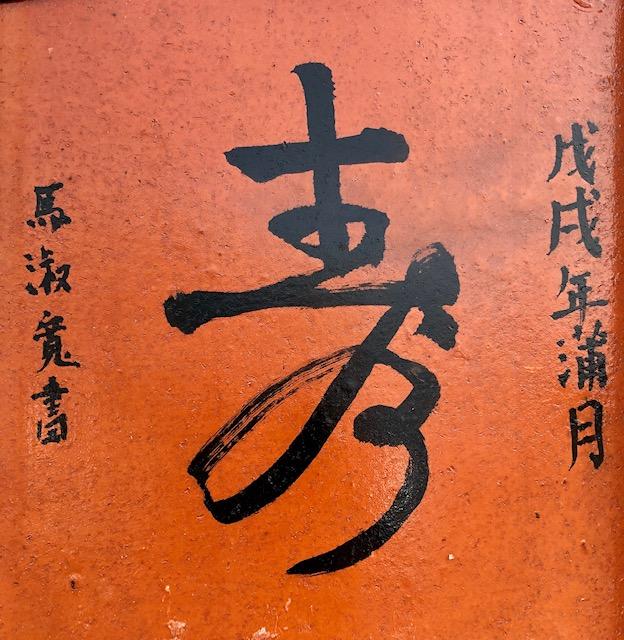 戊戌年蒲月
壽
馬淑寬書